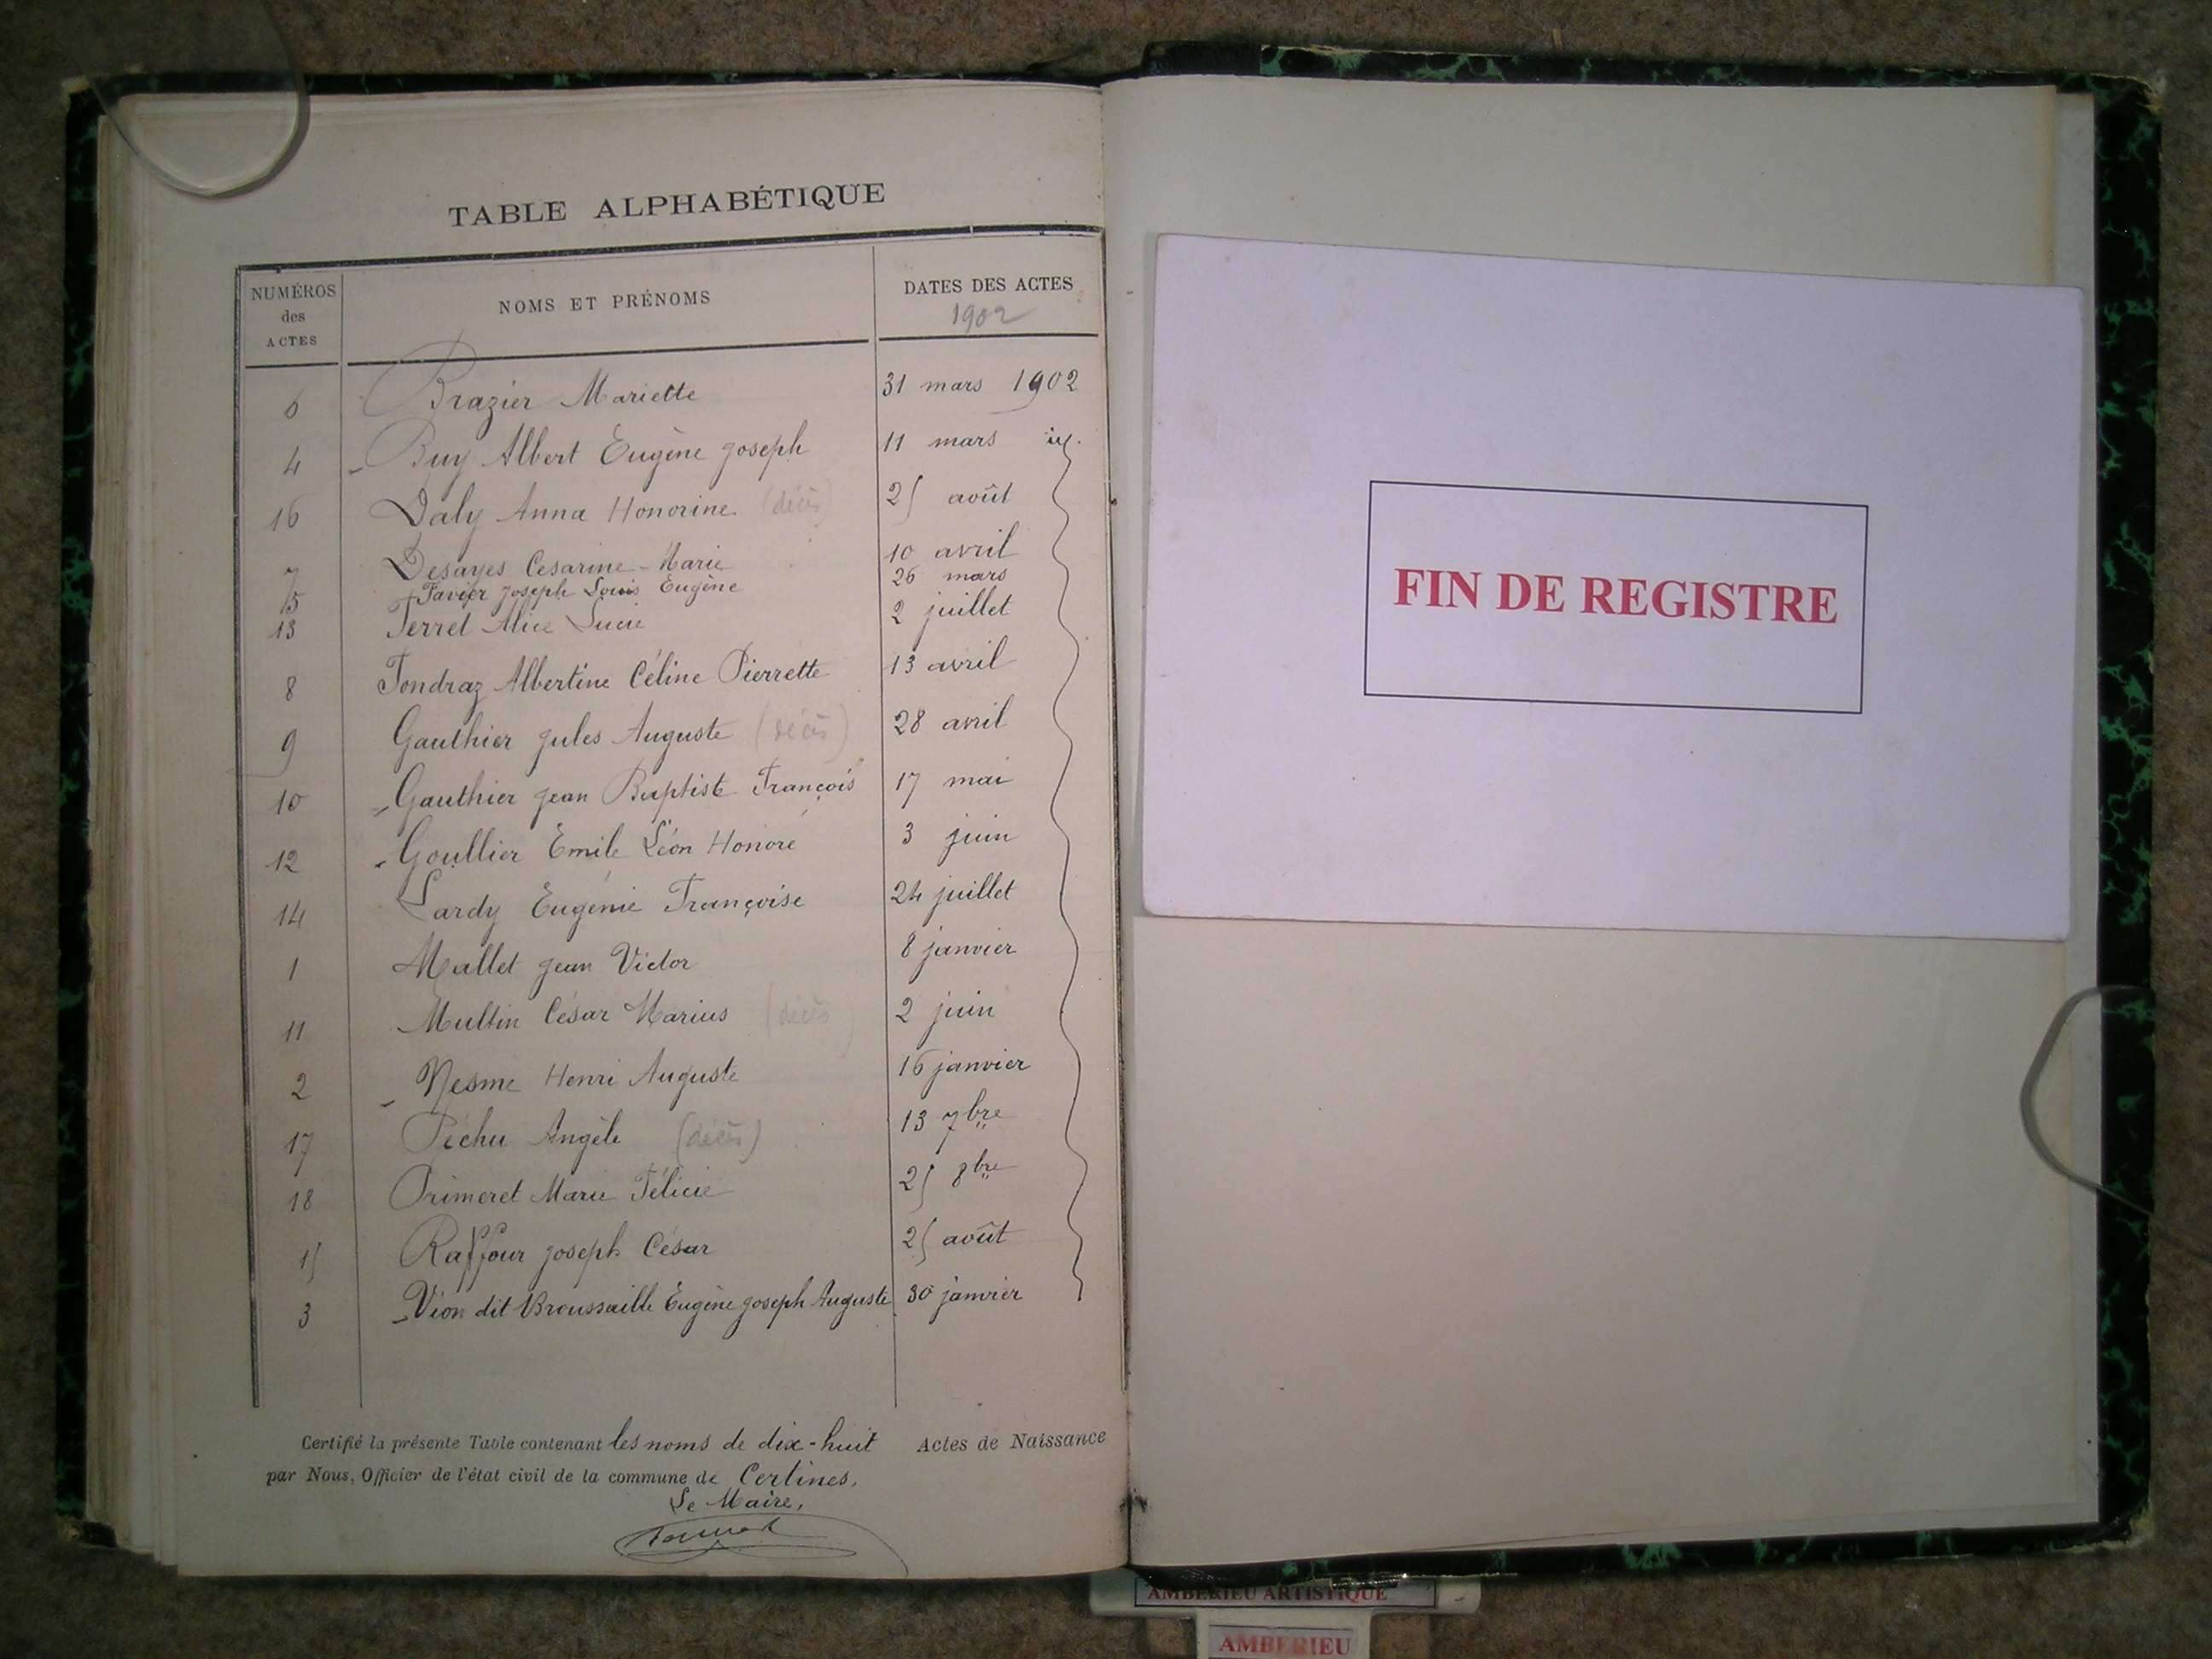 TABLE ALPHABÉTIQUE
NUMÉROS des ACTES NOMS ET PRÉNOMS DATES DES ACTES 1902
6 Brazier Mariette 31 mars 1902
4 Buy Albert Eugène Joseph 11 mars
16 Daly Anna Honorine (décès) 25 août
7 Desayes Cesarine-Marie 10 avril
5 Favier Joseph Louis Eugène 26 mars
13 Ferret Alice Lucie 2 juillet
8 Fondraz Albertine Céline Pierrette 13 avril
9 Gauthier Jules Auguste (décès) 28 avril
10 Gauthier Jean Baptiste François 17 mai
12 Goullier Emile Léon Honoré 3 juin
14 Lardy Eugénie Françoise 24 juillet
1 Mallet Jean Victor 8 janvier
11 Multin César Marius (décès) 2 juin
2 Nesme Henri Auguste 16 janvier
17 Péchu Angèle (décès) 13 7bre
18 Primeret Marie Félicie 25 8bre
15 Raffour Joseph César 25 août
3 Vion dit Broussaille Eugène Joseph Auguste 30 janvier
Certifié la présente Table contenant les noms de dix-huit Actes de Naissance
par Nous, Officier de l'état civil de la commune de Certines.
Le Maire,
FIN DE REGISTRE
AMBERIEU ARTISTIQUE
AMBERIEU